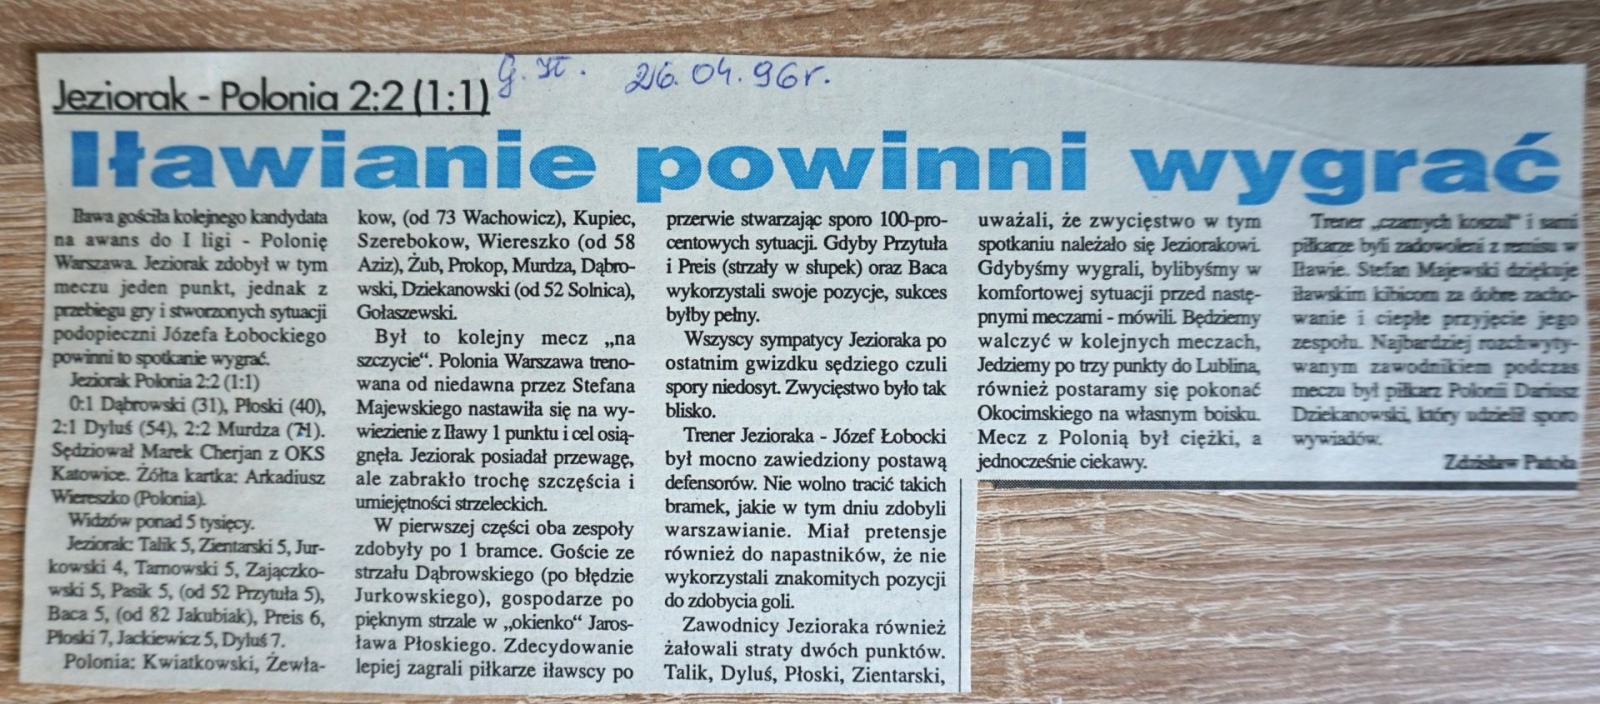 Jeziorak - Polonia 2:2 (1:1)
G. Il. 26.04.96r.
Iławianie powinni wygrać
Iława gościła kolejnego kandydata
na awans do I ligi - Polonię
Warszawa. Jeziorak zdobył w tym
meczu jeden punkt, jednak z
przebiegu gry i stworzonych sytuacji
podopieczni Józefa Łobockiego
powinni to spotkanie wygrać.
Jeziorak Polonia 2:2 (1:1)
0:1 Dąbrowski (31), Płoski (40),
2:1 Dyluś (54), 2:2 Murdza (71).
Sędziował Marek Cherjan z OKS
Katowice. Żółta kartka: Arkadiusz
Wiereszko (Polonia).
Widzów ponad 5 tysięcy.
Jeziorak: Talik 5, Zientarski 5, Jur-
kowski 4, Tarnowski 5, Zajączko-
wski 5, Pasik 5, (od 52 Przytuła 5),
Baca 5, (od 82 Jakubiak), Preis 6,
Płoski 7, Jackiewicz 5, Dyluś 7.
Polonia: Kwiatkowski, Żewła-
kow, (od 73 Wachowicz), Kupiec,
Szerebokow, Wiereszko (od 58
Aziz), Żub, Prokop, Murdza, Dąbro-
wski, Dziekanowski (od 52 Solnica),
Gołaszewski.
Był to kolejny mecz „na
szczycie“. Polonia Warszawa treno-
wana od niedawna przez Stefana
Majewskiego nastawiła się na wy-
wiezienie z Iławy 1 punktu i cel osią-
gnęła. Jeziorak posiadał przewagę,
ale zabrakło trochę szczęścia i
umiejętności strzeleckich.
W pierwszej części oba zespoły
zdobyły po 1 bramce. Goście ze
strzału Dąbrowskiego (po błędzie
Jurkowskiego), gospodarze po
pięknym strzale w „okienko“ Jaros-
ława Płoskiego. Zdecydowanie
lepiej zagrali piłkarze iławscy po
przerwie stwarzając sporo 100-pro-
centowych sytuacji. Gdyby Przytuła
i Preis (strzały w słupek) oraz Baca
wykorzystali swoje pozycje, sukces
byłby pełny.
Wszyscy sympatycy Jezioraka po
ostatnim gwizdku sędziego czuli
spory niedosyt. Zwycięstwo było tak
blisko.
Trener Jezioraka - Józef Łobocki
był mocno zawiedziony postawą
defensorów. Nie wolno tracić takich
bramek, jakie w tym dniu zdobyli
warszawianie. Miał pretensje
również do napastników, że nie
wykorzystali znakomitych pozycji
do zdobycia goli.
Zawodnicy Jezioraka również
żałowali straty dwóch punktów.
Talik, Dyluś, Płoski, Zientarski,
uważali, że zwycięstwo w tym
spotkaniu należało się Jeziorakowi.
Gdybyśmy wygrali, bylibyśmy w
komfortowej sytuacji przed nastę-
pnymi meczami - mówili. Będziemy
walczyć w kolejnych meczach,
Jedziemy po trzy punkty do Lublina,
również postaramy się pokonać
Okocimskiego na własnym boisku.
Mecz z Polonią był ciężki, a
jednocześnie ciekawy.
Trener „czarnych koszul“ i sami
piłkarze byli zadowoleni z remisu w
Iławie. Stefan Majewski dziękuje
iławskim kibicom za dobre zacho-
wanie i ciepłe przyjęcie jego
zespołu. Najbardziej rozchwyty-
wanym zawodnikiem podczas
meczu był piłkarz Polonii Dariusz
Dziekanowski, który udzielił sporo
wywiadów.
Zdzisław Putoła